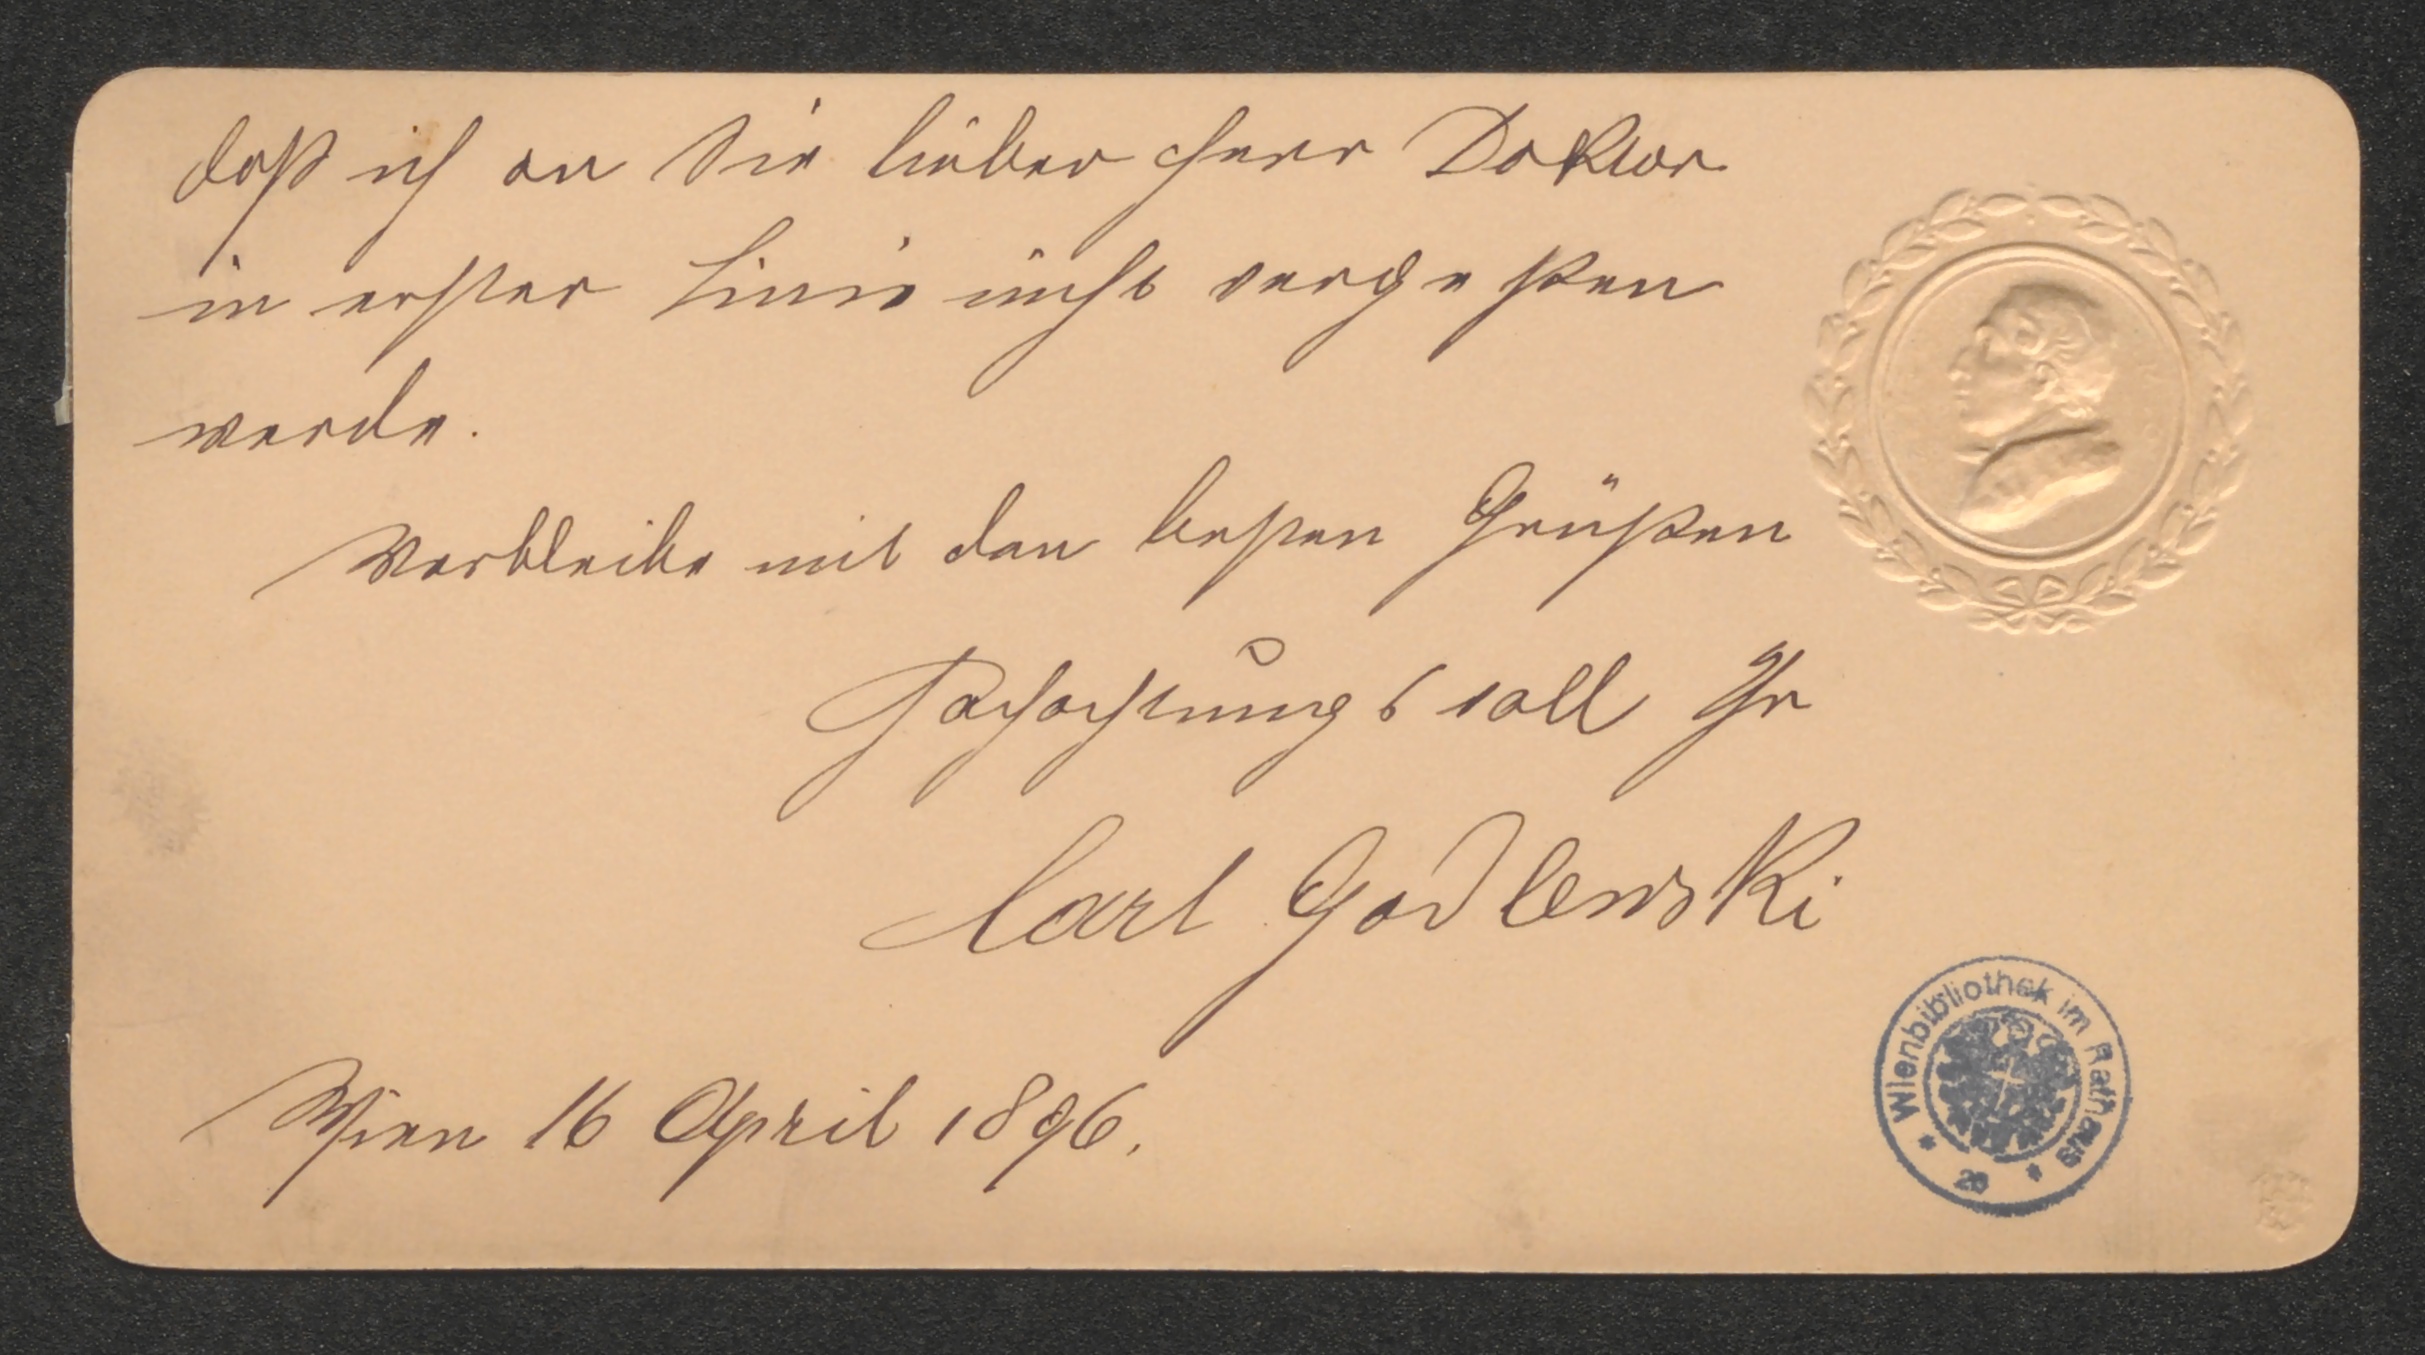 daß ich an Sie lieber Herr Doktor
in erster Linie nicht vergeßen
werde.
Verbleibe mit den besten Grüßen
Hochachtungsvoll Ihr
Carl Godlewski
Wien 16 April 1896.
Wienbibliothek im Rathaus
* 26 *